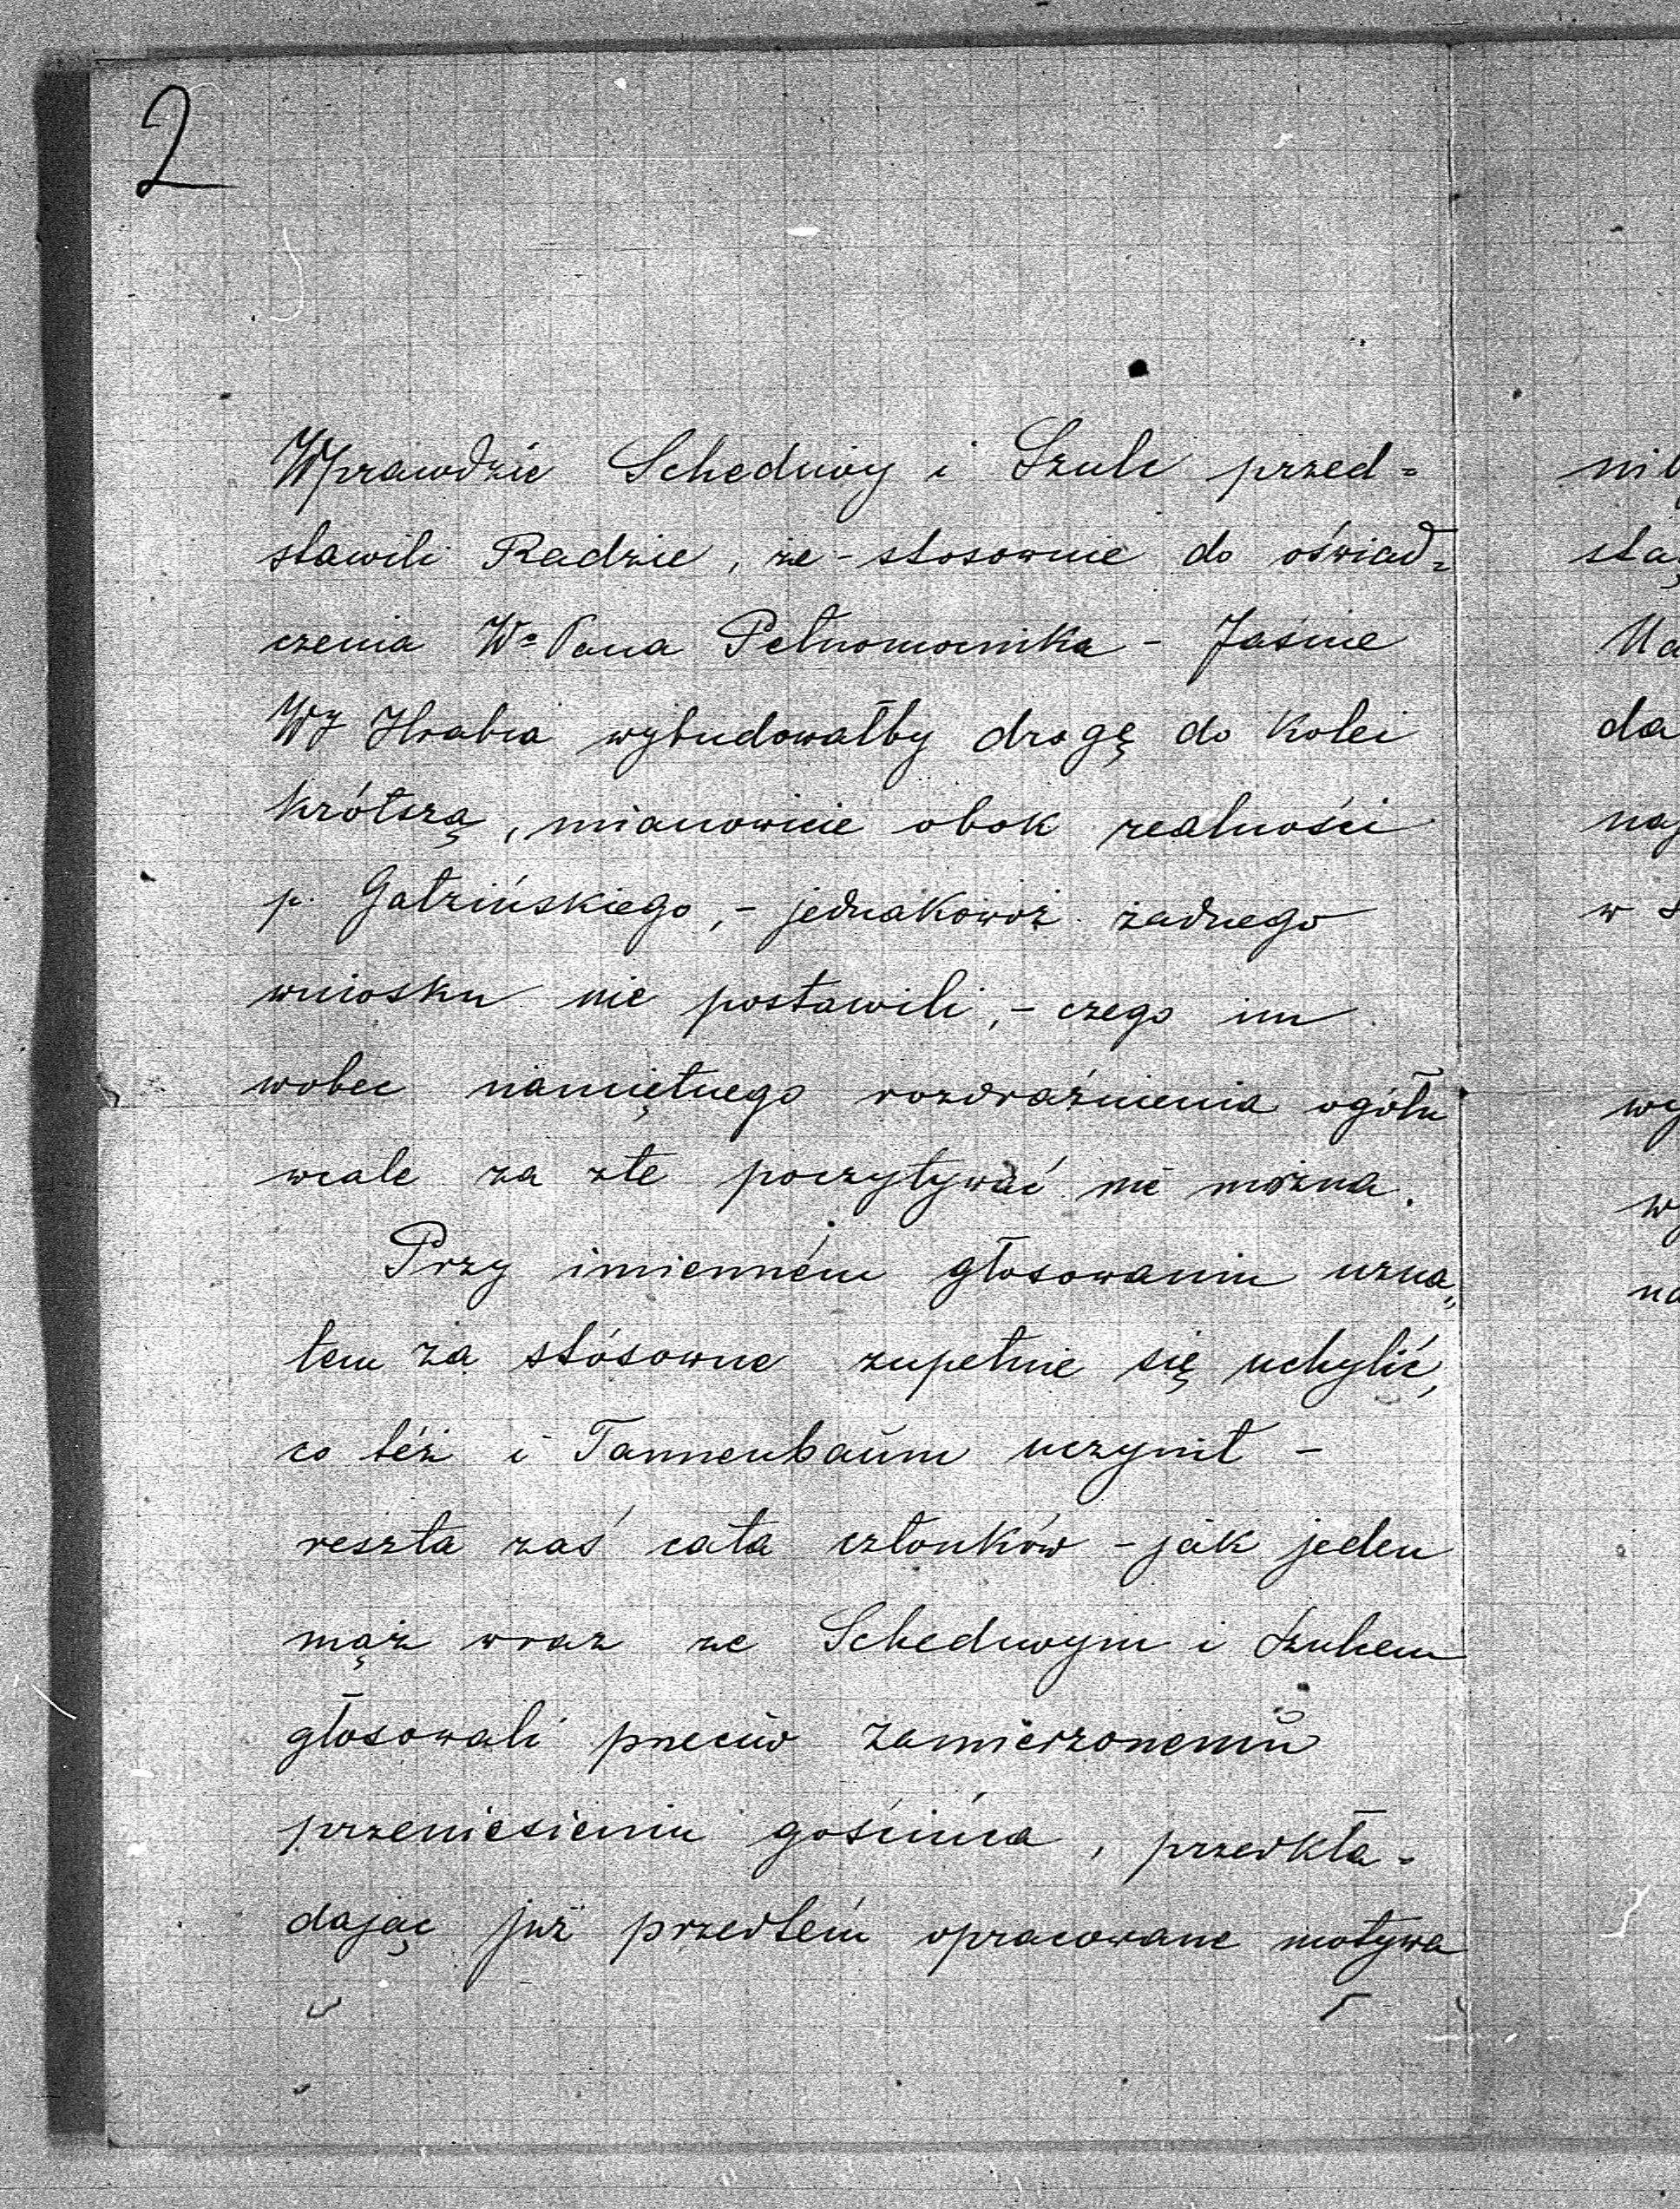 2
Wprawdzie Schediwy i Szulc przed=
stawili Radzie, że - stosownie do oświad=
czenia Wo Pana Pełnomocnika - Jaśnie
WJ Hrabia wybudowałby drogę do kolei
krótszą, mianowicie obok realności
p. Gałzińskiego, - jednakowoż żadnego
wniosku nie postawili, - czego im
wobec namiętnego rozdrażnienia ogółu
wcale za złe poczytywać nie można.
Przy imienném głosowaniu uzna„
łem za stósowne zupełnie się uchylić,
co téż i Tannenbaum uczynił -
reszta zaś cała członków - jak jeden
mąż wraz ze Schediwym i Szulcem
głosowali przeciw zamierzonemu
przeniesieniu gościńca, przedkła-
dając już przedtém opracowane motywa